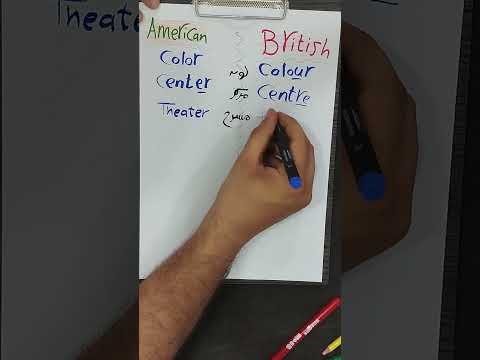 American British
Color لون Colour
Center مركز Centre
Theater مسرح